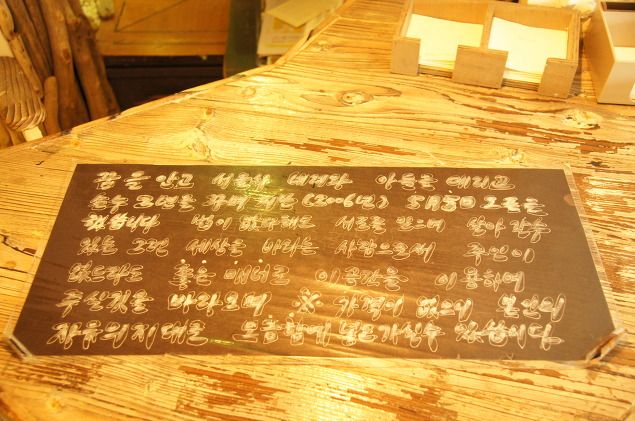 꿈을 안고 서울서 내려와 아들을 데리고
손수 모면을 꾸며 작년 (2006년) 5月30日 오픈을
했습니다 법이 없다해도 서로를 믿으며 살아 갈수
있는 그런 세상을 바라는 사람으로써 주인이
없드라도 좋은 매너로 이공간을 이용하여
주실것을 바라오며 ※ 가격이 없으며 본인의
자유의지대로 모금함에 넣고가실수 있습니다.